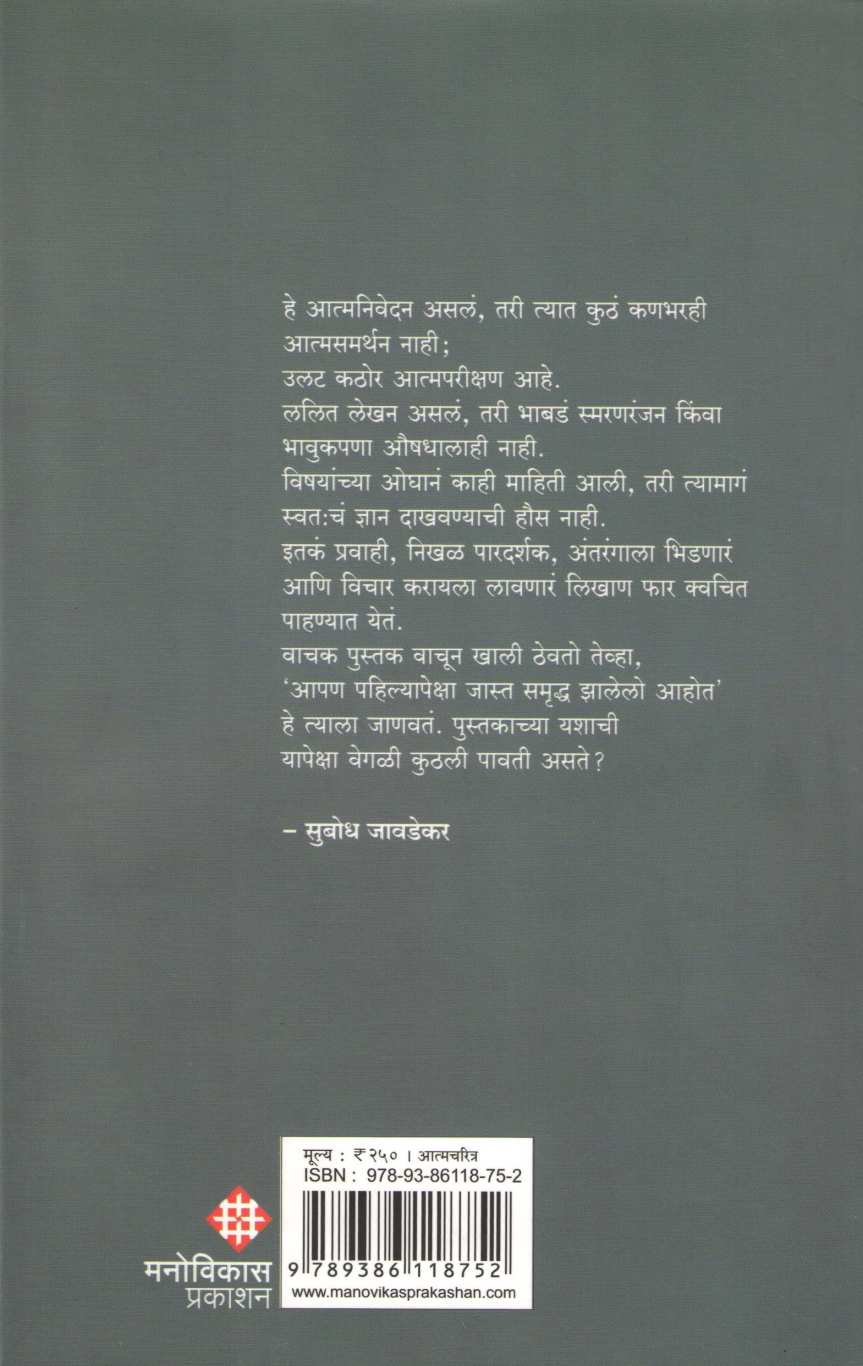 हे आत्मनिवेदन असलं, तरी त्यात कुठं कणभरही
आत्मसमर्थन नाही;
उलट कठोर आत्मपरीक्षण आहे.
ललित लेखन असलं, तरी भाबडं स्मरणरंजन किंवा
भावुकपणा औषधालाही नाही.
विषयांच्या ओघानं काही माहिती आली, तरी त्यामागं
स्वतःचं ज्ञान दाखवण्याची हौस नाही.
इतकं प्रवाही, निखळ पारदर्शक, अंतरंगाला भिडणारं
आणि विचार करायला लावणारं लिखाण फार क्वचित
पाहण्यात येतं.
वाचक पुस्तक वाचून खाली ठेवतो तेव्हा,
‘आपण पहिल्यापेक्षा जास्त समृद्ध झालेलो आहोत’
हे त्याला जाणवतं. पुस्तकाच्या यशाची
यापेक्षा वेगळी कुठली पावती असते?
– सुबोध जावडेकर
मूल्य : ₹ २५० । आत्मचरित्र
ISBN : 978-93-86118-75-2
9 789386 118752
www.manovikasprakashan.com
मनोविकास
प्रकाशन